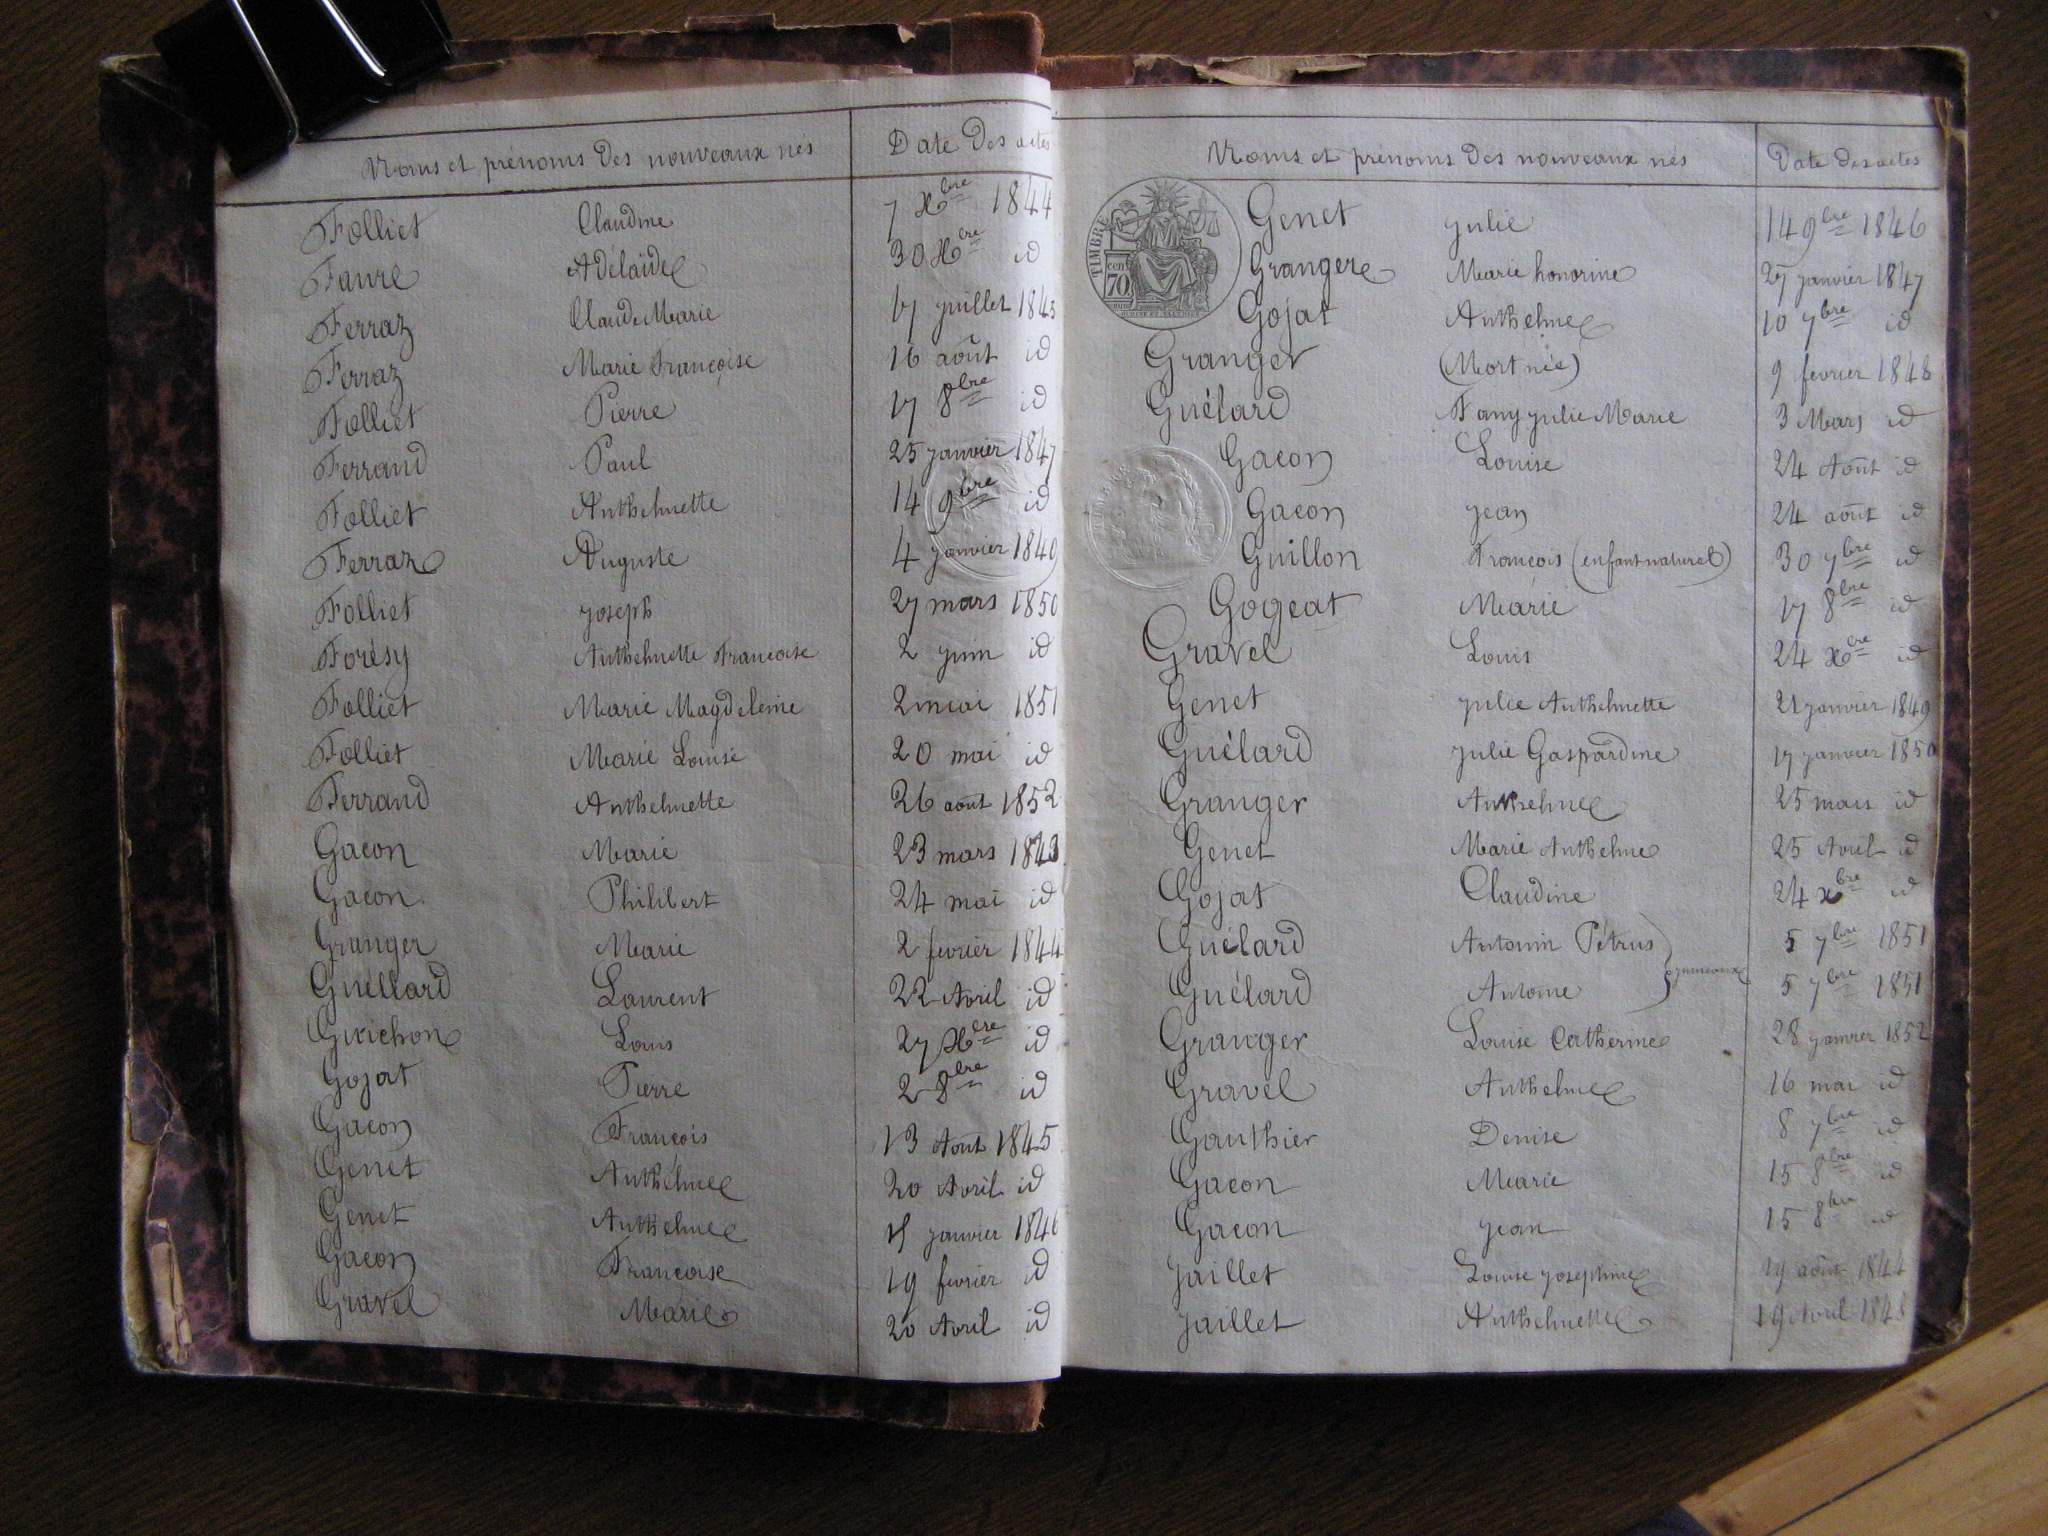 Noms et prénoms des nouveaux nés Date des actes
Folliet Claudine 7 Xbre 1844
Favre Adélaïde 30 Xbre id
Ferraz Claude Marie 17 juillet 1845
Ferraz Marie Françoise 16 août id
Folliet Pierre 17 8bre id
Ferrand Paul 25 janvier 1847
Folliet Anthelmette 14 9bre id
Ferraz Auguste 4 janvier 1849
Folliet joseph 27 mars 1850
Forésy Anthelmette Francoise 2 juin id
Folliet Marie Magdeleine 2 mai 1851
Folliet Marie Louise 20 mai id
Ferrand Anthelmette 26 août 1852
Gacon Marie 23 mars 1843
Gacon Philibert 24 mai id
Granger Marie 2 fevrier 1844
Guéllard Laurent 22 Avril id
Guichon Louis 27 Xbre id
Gojat Pierre 2 8bre id
Gacon François 13 Août 1845
Genet Anthelme 20 Avril id
Genet Anthelme 15 janvier 1846
Gacon Francoise 19 fevrier id
Gravel Marie 20 Avril id
Noms et prénoms des nouveaux nés Date des actes
TIMBRE
cen
70
Genet julie 14 9bre 1846
Granger Marie honorine 27 janvier 1847
Gojat Anthelme 10 7bre id
Granger (Mort née) 9 fevrier 1848
Guélard Fany julie Marie 3 Mars id
Gacon Louise 24 Août id
Gacon jean 24 août id
Guillon François (enfant naturel) 30 7bre id
Gogeat Marie 17 8bre id
Gravel Louis 24 xbre id
Genet julie Anthelmette 21 janvier 1849
Guélard julie Gaspardine 17 janvier 1850
Granger Anthelme 25 mars id
Genet Marie Anthelme 25 Avril id
Gojat Claudine 24 xbre id
Guélard Antonin Pétrus 5 7bre 1851
jumeaux
Guélard Antoine 5 7bre 1851
Granger Louise Catherine 28 janvier 1852
Gravel Anthelme 16 mai id
Gauthier Denise 8 7bre id
Gacon Marie 15 8bre id
Gacon jean 15 8bre id
jaillet Louise josephine 19 août 1844
jaillet Anthelmette 19 Avril 1848